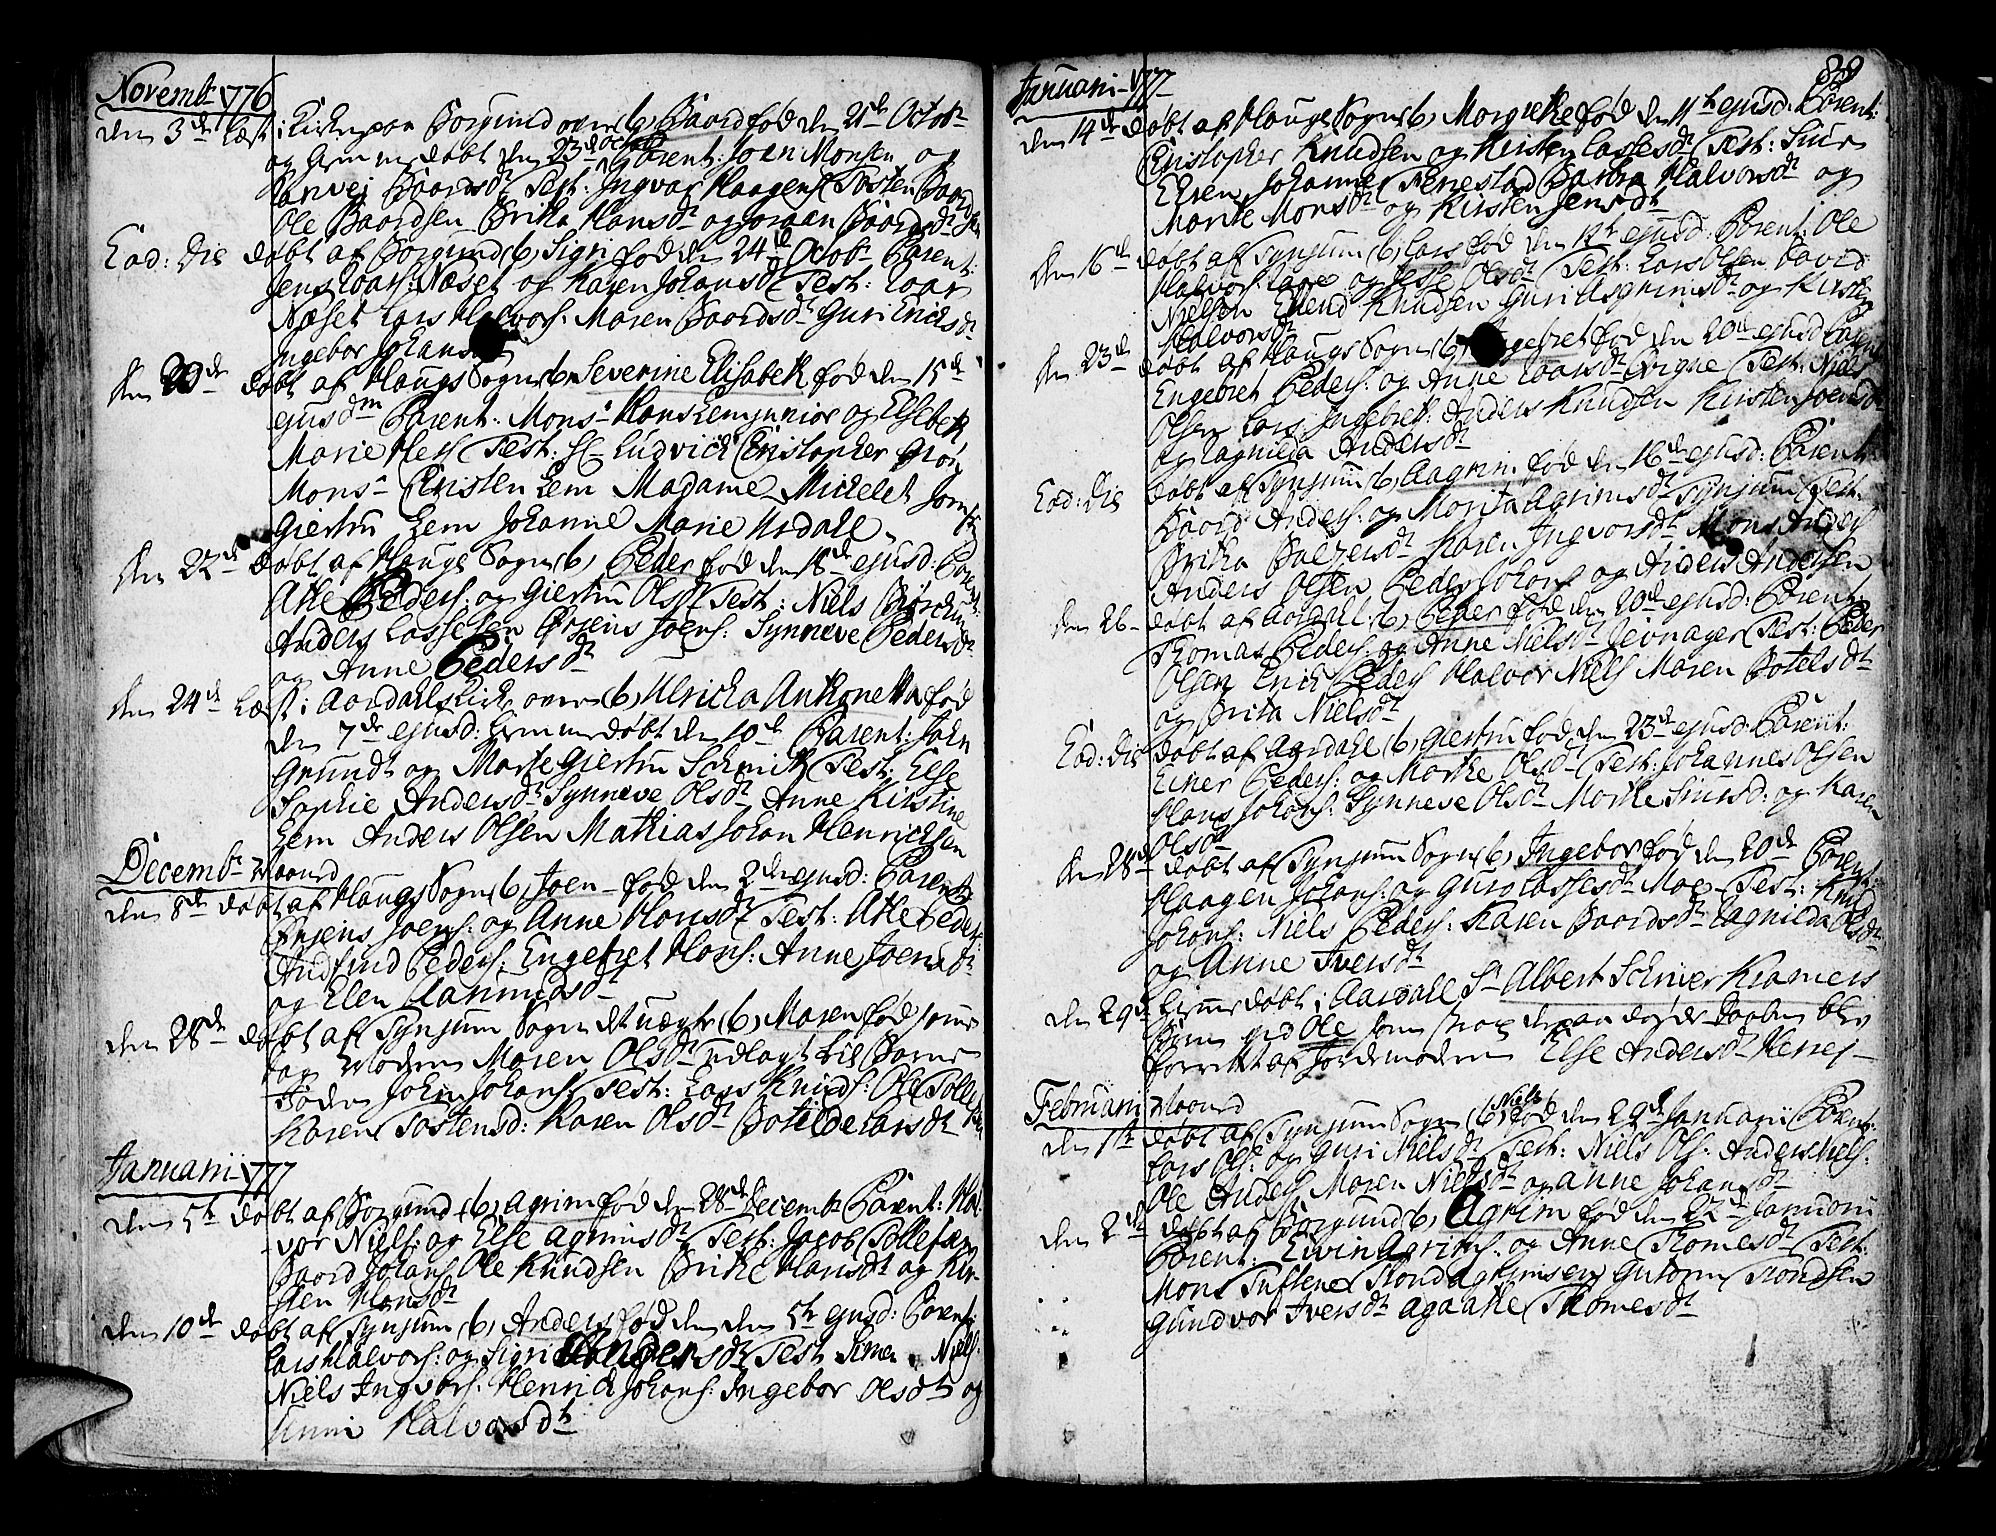 Novembr 1776
den 3de læst i Kirken paa Borgund over (b) Baard fød den 21de Octobr
og hiemmedøbt den 23de Octob Parent: Joen Monsen og
Ranvei Baardsdr Test: Ingvar Haagens Tosten Baardsen
Ole Baardsen Britha Hansdr og Joraan Baardsdr
Eod: Die døbt af Borgund (b) Sigri fød den 24de Octobr Parent:
Jens Loars: Næset og Karen Johansdr Test: Loar
Næset Lars Halvors: Maren Baardsdr Guri Ericksdr
Ingebor Johansdr
den 20de døbt af Haugs Sogn (b) Severine Elisabeth fød den 15de
ejusdm Parent: Monsr Hans Lem junior og Elsebeth
Marie Hess Test: Hr Ludvick Christopher
Monsr Christen Lem Madame Michelet Jomfru
Giertru Lem Johanne Marie Urdahl
den 22de døbt af Haugs Sogn (b) Peder fød den 18de ejusd: Parent:
Atle Peders: og Giertru Olsdr Test: Niels
Anders Lassesen Ørjens Joens: Synneve Pedersdr
og Anne Pedersdr
den 24de Læst i Aardahls Kirk over (b) Ulricka Anthonetta fød
den 7de ejusd: hiemmedøbt den 10de Parent: John
Grundt og Marte Giertru Schmith Test: Else
Sophie Andersdr Synneve Olsdr Anne Kirstine
Lem Anders Olsen Mathias Johan Henrichsen
Decembr Maaned
den 8de døbt af Haugs Sogn (b) Joen fød den 2den ejusd: Parent:
Ørjens Joens: og Anne Hansdr Test: Atle Peders:
Andfind Peders: Engebret Hans: Anne Joensdr
og Elen Aanundsdr
den 28de døbt af Tynjum Sogn et uægte (b) Maren fød
og Moderen Maren Olsdr udlagt til Barne
Faderen John Johans: Test: Lars Knuds: Ole Tolles
Karen Tostensd: Karen Olsdr Botilde Larsdr
Januarii 1777
den 5te døbt af Borgund (b) Agrim fød den 28de Decembr Parent: Hal-
vor Niels: og Else Agrimsdr Test: Jacob Tollefsen
Baard Johans Ole Knudsen Brithe Hansdr og Kir-
sten Hansdr
den 10de døbt af Tynjum (b) Anders fød den den 5te ejusd: Parent:
Lars Halvors: og Sigri Andersdr Test Simen Niels:
Niels Ingvars: Henrick Johans: Ingebor Olsdr og
Sunni Halvorsdr
89
Januarii 1777
den 14de døbt af Haugs Sogn (b) Margrethe fød den 11te ejusd: Parent:
Christopher Knudsen og Kirsten Lassesdr Test: Siur
Ellsen Johannes Fenestad Barbra Halvorsdr og
Marite Monsdr og Kirsten Jensdr
den 16de døbt af Tynjum (b) Lars fød den 12te ejusd: Parent: Ole
Halvors: og Else Olsdr Test: Lars Olsen David
Nielsen Ellend Knudsen Guri Asgrimsdr og Kirsten
Halvorsdr
den 23de døbt af Haugs Sogn (b) Ingebret fød den 20de ejusd Parent:
Engebret Peders: og Anne Loarsdr Test: Niels
Olsen Lars Ingebrets: Anders Knudsen Kirsten Joensdr
og Ragnilda Andersdr
Eod: Die døbt af Tynjum (b) Aagrim fød den 16de ejusd: Parent:
Baard Anders: og Marita Agrimsdr Tynjum Test:
Britha Balzersdr Karen Ingvorsdr Mons Anders
Anders Olsen Peder Johans og Anders Andersen
den 26 døbt af Aardahl (b) Peder fød den 20de ejusd: Parent:
Thomas Peders: og Anne Nielsdr Jevnager Test: Peder
Olsen Erick Peders Halvor Niels Maren Botelsdr
og Brita Nielsdr
Eod: Die døbt af Aardahl (b) Giertru fød den 23de ejusd Parent:
Einer Peders: og Marthe Olsdr Test: Johannes Olsen
Hans Johans: Synneve Olsdr Marthe Siursd: og Karen
Olsdr
den 28de døbt af Tynjum Sogn (b) Ingebor fød den 20de Parent:
Haagen Johans: og Guro Lassesdr Moe Test: Knud
Johans: Niels Peders: Karen Baardsdr Ragnilda Olsdr
og Anne Iversdr
den 29de hiemedøbt i Aardahl Sr Albert Schriver Kramers
Barn ved Ole som strax derpaa døde Daaben blev
forrettet af Jordemoderen Else Andersdr
Februarii Maaned
den 1te døbt af Tynjum Sogn (b) Niels fød den 29de Januarii Parent:
Lars Ols: og Guri Nielsdr Test: Niels Ols: Anders Niels:
Ole Anders Maren Nielsdr og Anne Johansdr
den 2de døbt af Borgund (b) Agrim fød den 22de Januarii
Parent: Eivin Agrims: og Anne Thomesdr Test:
Mons Tuftene Trond Agrimsen Gutorm Trondsen
Gundvor Iversdr Agaathe Thomesdr